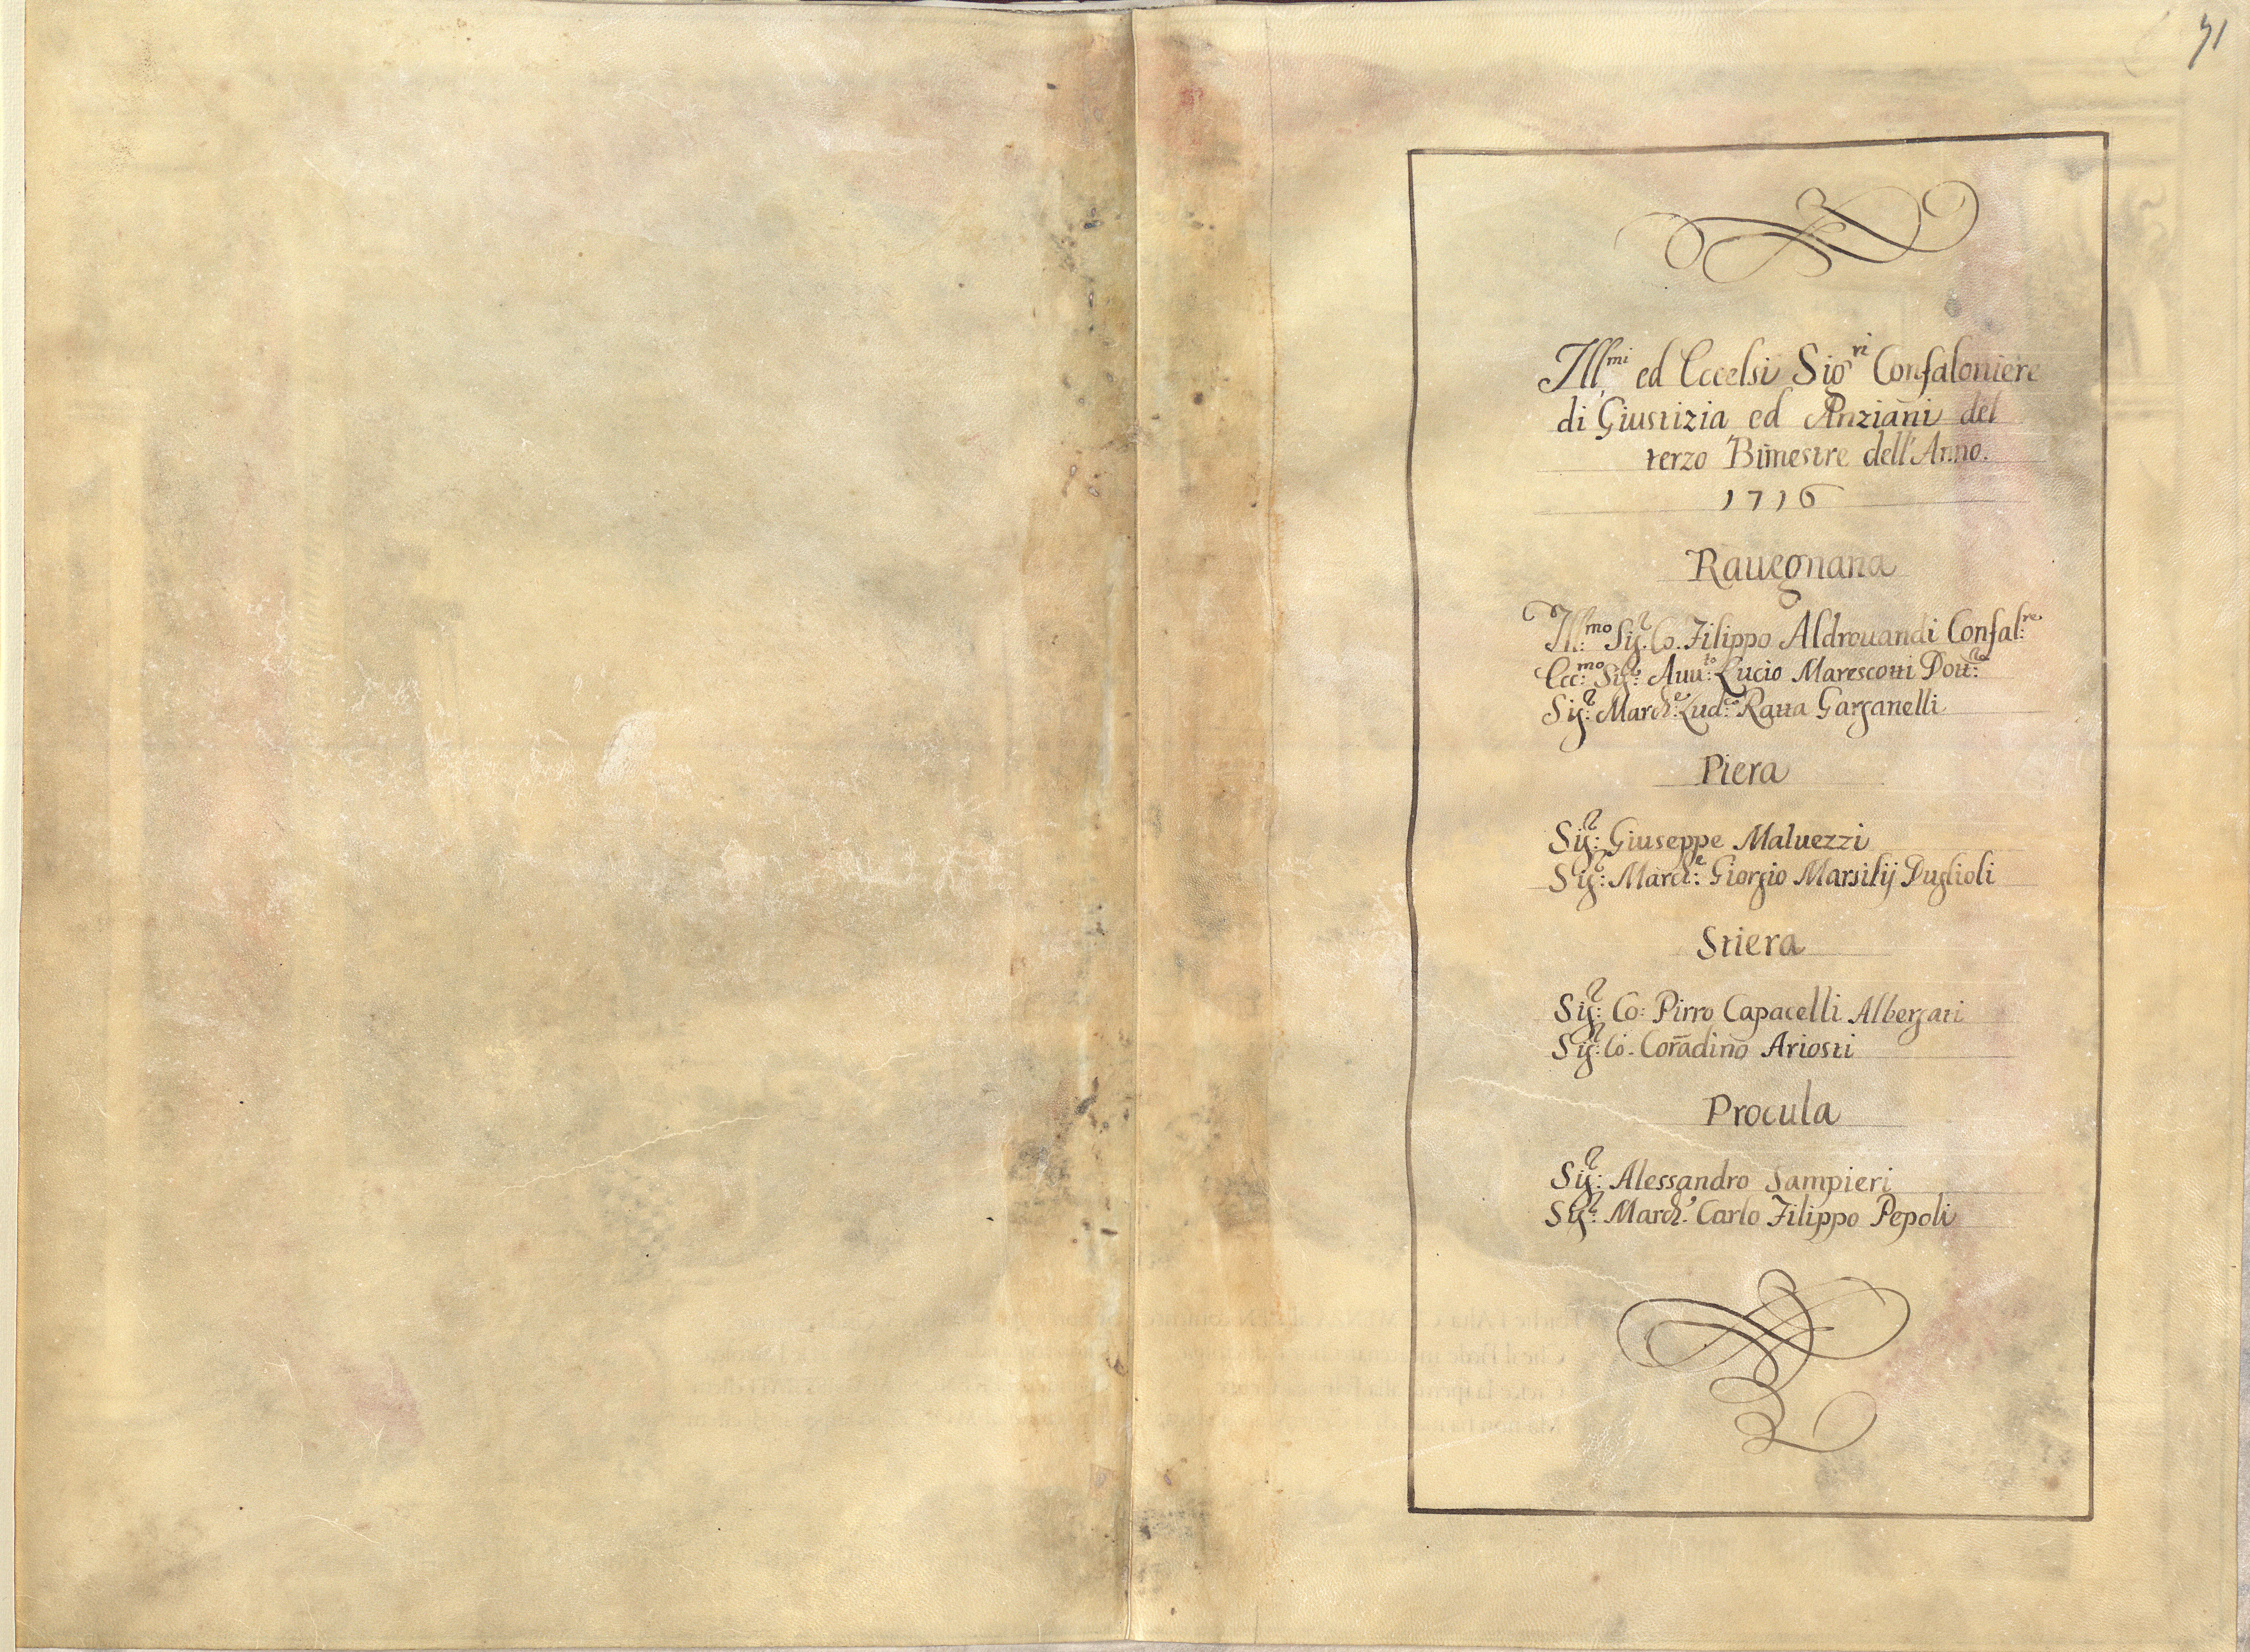 71
Ill.mi ed Eccelsi Sig.ri Confaloniere
di Giustizia ed Anziani del
terzo Bimestre dell'Anno.
1716
Rauegnana
Ill:mo Sig.r Co. Filippo Aldrouandi Confal:re
Ecc:mo Sig:r Auu:to Lucio Marescotti Dott:re
Sig:r March:e Lud:co Ratta Garganelli
Piera
Sig:r Giuseppe Maluezzi
Sig:r March:e Giorgio Marsilij Duglioli
Stiera
Sig:r Co: Pirro Capacelli Albergati
Sig:r Co. Coradino Ariosti
Procula
Sig:r Alessandro Sampieri
Sig:r March:e Carlo Filippo Pepoli